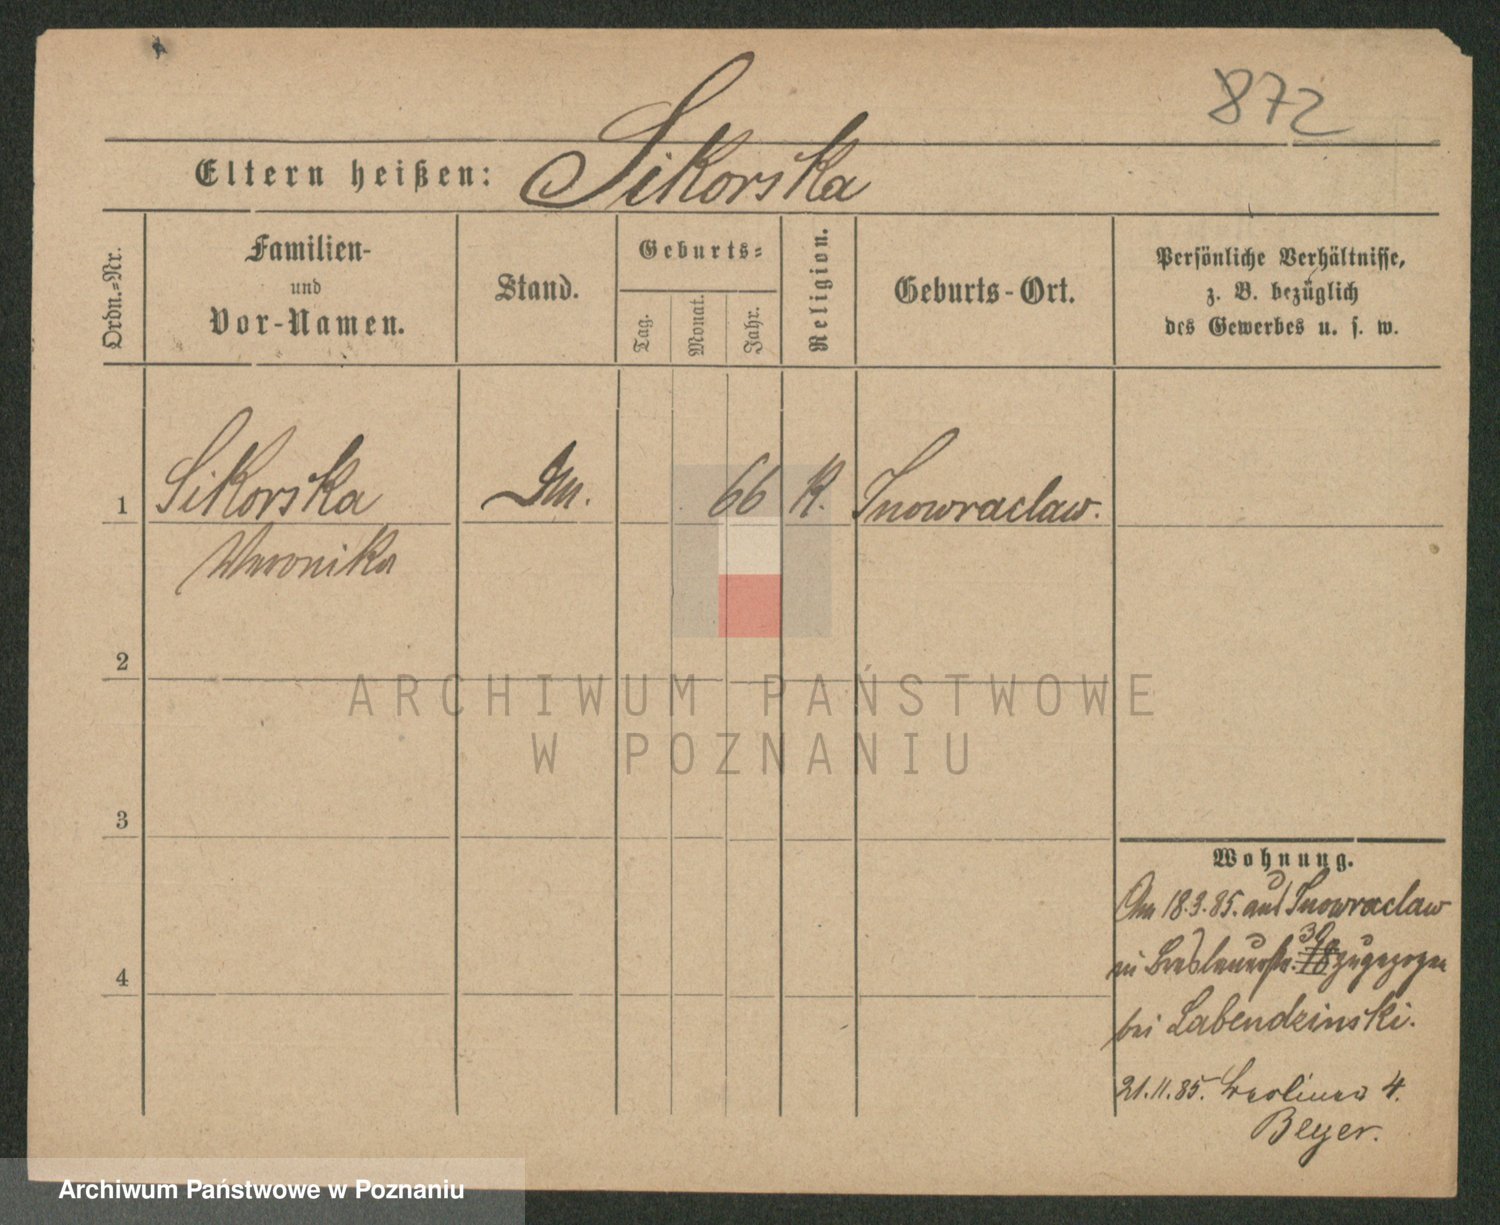 872
Eltern heißen: Sikorska
Ordn.-Nr.
Familien-
und
Vor-Namen.
Stand.
Geburts-
Tag.
Monat.
Jahr.
Religion.
Geburts-Ort.
Persönliche Verhältnisse,
z. B. bezüglich
des Gewerbes u. s. w.
1 Sikorska 66 K. Inowraclaw.
Veronika
2
ARCHIWUM PAŃSTWOWE
W POZNANIU
3
Wohnung.
Am 18.3.85. aus Inowraclaw
in Breslauerstr. 39 18 zugezogen
4
bei Labendzinski.
21.11.85. Berliner 4.
Beyer.
Archiwum Państwowe w Poznaniu